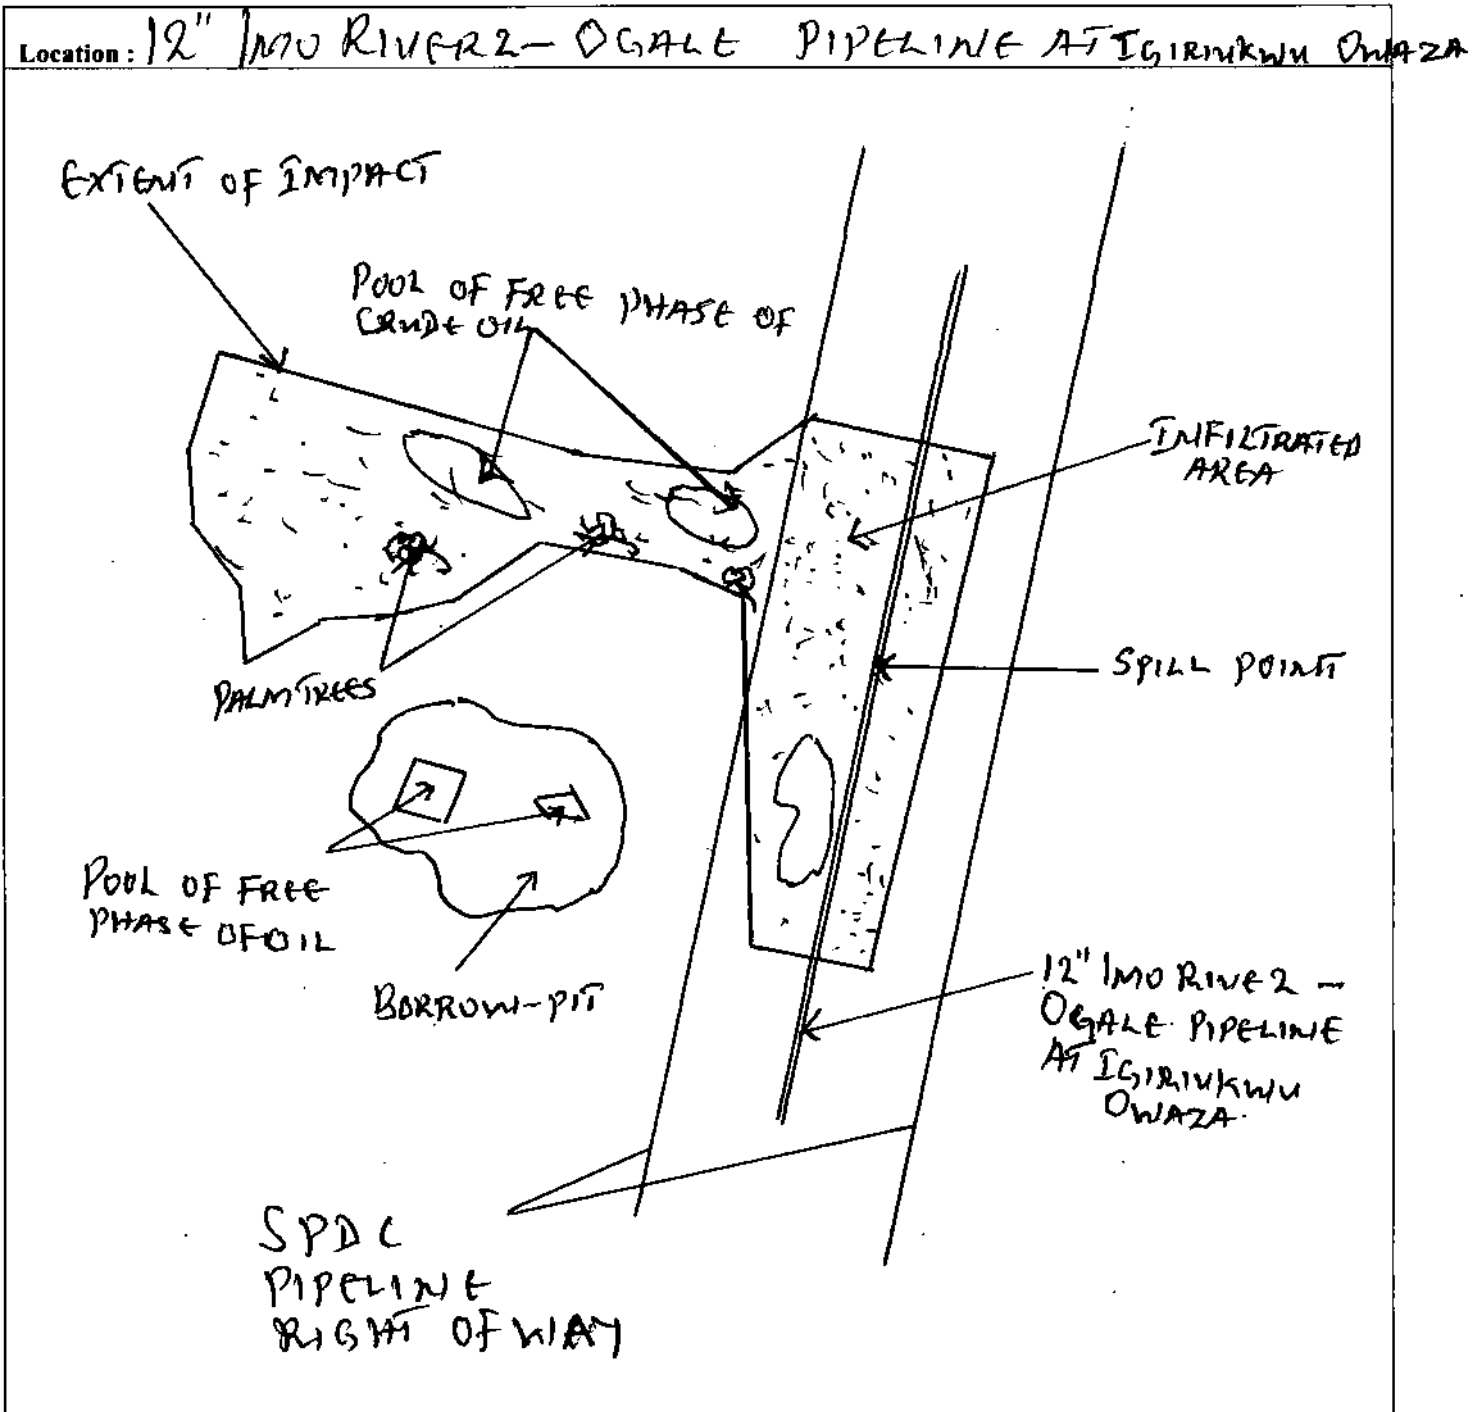 Location : 12" IMO RIVER 2 - OGALE PIPELINE AT IGIRIUKWU OWAZA
EXTENT OF IMPACT
POOL OF FREE PHASE OF
CRUDE OIL
INFILTRATED
AREA
SPILL POINT
PALM TREES
POOL OF FREE
PHASE OF OIL
BORROW-PIT
12" IMO RIVE 2 -
OGALE PIPELINE
AT IGIRIUKWU
OWAZA.
SPDC
PIPELINE
RIGHT OF WAY